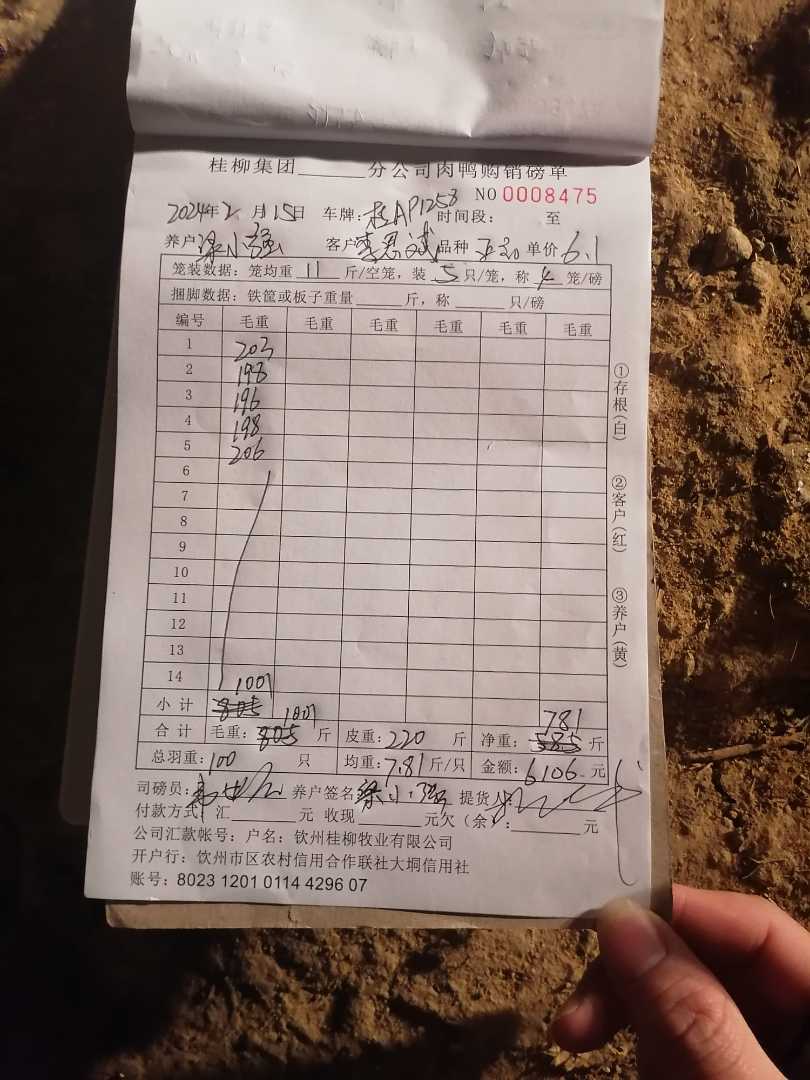 桂柳集团______分公司肉鸭购销磅单
NO 0008475
2024年2月15日 车牌:桂AP1253 时间段: 至
养户 梁小强 客户 李思斌 品种 单价 6.1
笼装数据:笼均重 11 斤/空笼,装 5 只/笼,称 4 笼/磅
捆脚数据:铁筐或板子重量______斤,称______只/磅
编号 毛重 毛重 毛重 毛重 毛重 毛重
1 203
2 198
3 196
4 198
5 206
6
7
8
9
10
11
12
13
14
小计 805 1001
合计 毛重:805 1001 斤 皮重:220 斤 净重:585 781 斤
总羽重:100 只 均重:7.81 斤/只 金额:6106 元
司磅员: 养户签名 梁小强 提货人:
付款方式:汇______元 收现______元欠(余):______元
公司汇款帐号:户名:钦州桂柳牧业有限公司
开户行:钦州市区农村信用合作联社大垌信用社
账号:8023 1201 0114 4296 07
①存根(白)
②客户(红)
③养户(黄)